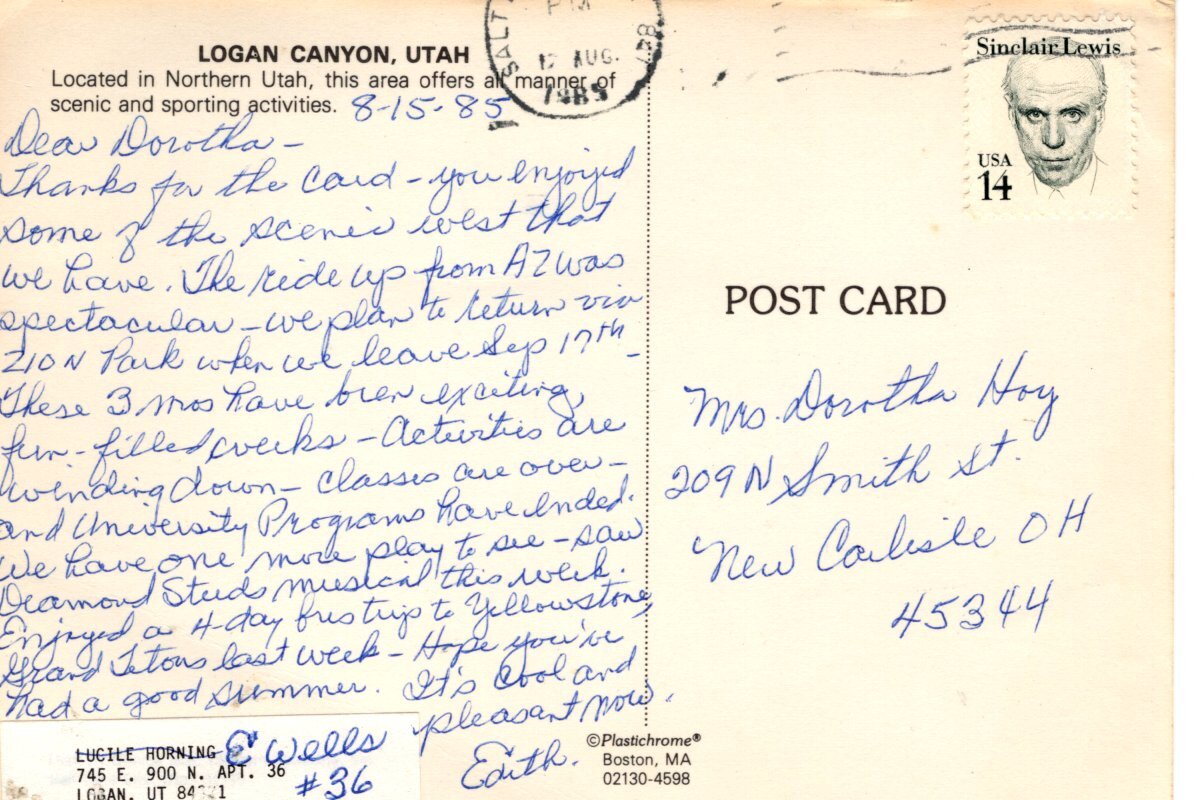 LOGAN CANYON, UTAH
Located in Northern Utah, this area offers all manner of
scenic and sporting activities. 8-15-85
Dear Dorotha -
Thanks for the card - you enjoyed
some of the scenic west that
we have. The ride up from AZ was
spectacular - we plan to return via
ZION Park when we leave Sep 17th -
These 3 mos have been exciting,
fun-filled weeks - Activities are
winding down - classes are over -
and University Programs have ended.
We have one more play to see - saw
Diamond Studs musical this week.
Enjoyed a 4-day bus trip to Yellowstone,
Grand Tetons last week - Hope you've
had a good summer. It's cool and
pleasant now.
Edith.
LUCILE HORNING E Wells
745 E. 900 N. APT. 36
#36
LOGAN, UT
SALT
PM
AUG.
1985
841
Sinclair Lewis
USA
14
POST CARD
Mrs. Dorotha Hoy
209 N Smith St.
New Carlisle OH
45344
©Plastichrome®
Boston, MA
02130-4598